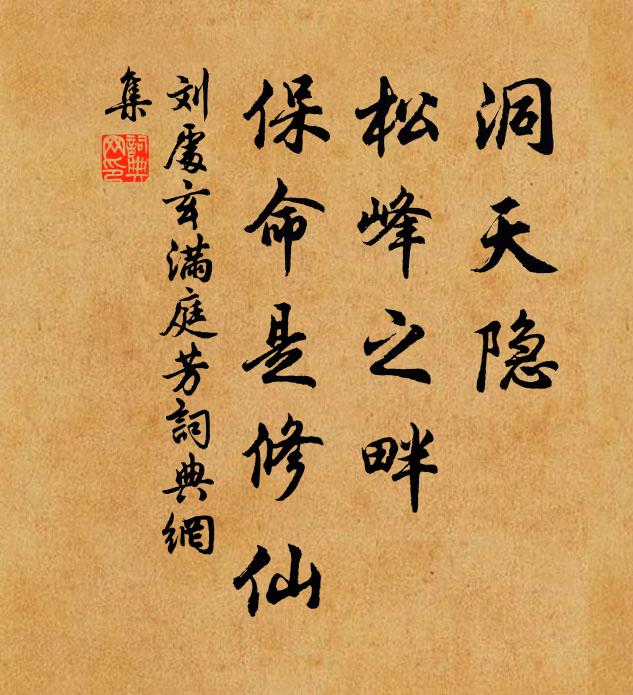 洞天隐
松峰之畔
保命是修仙
刘處玄满庭芳詞典網
集
詞典
网印